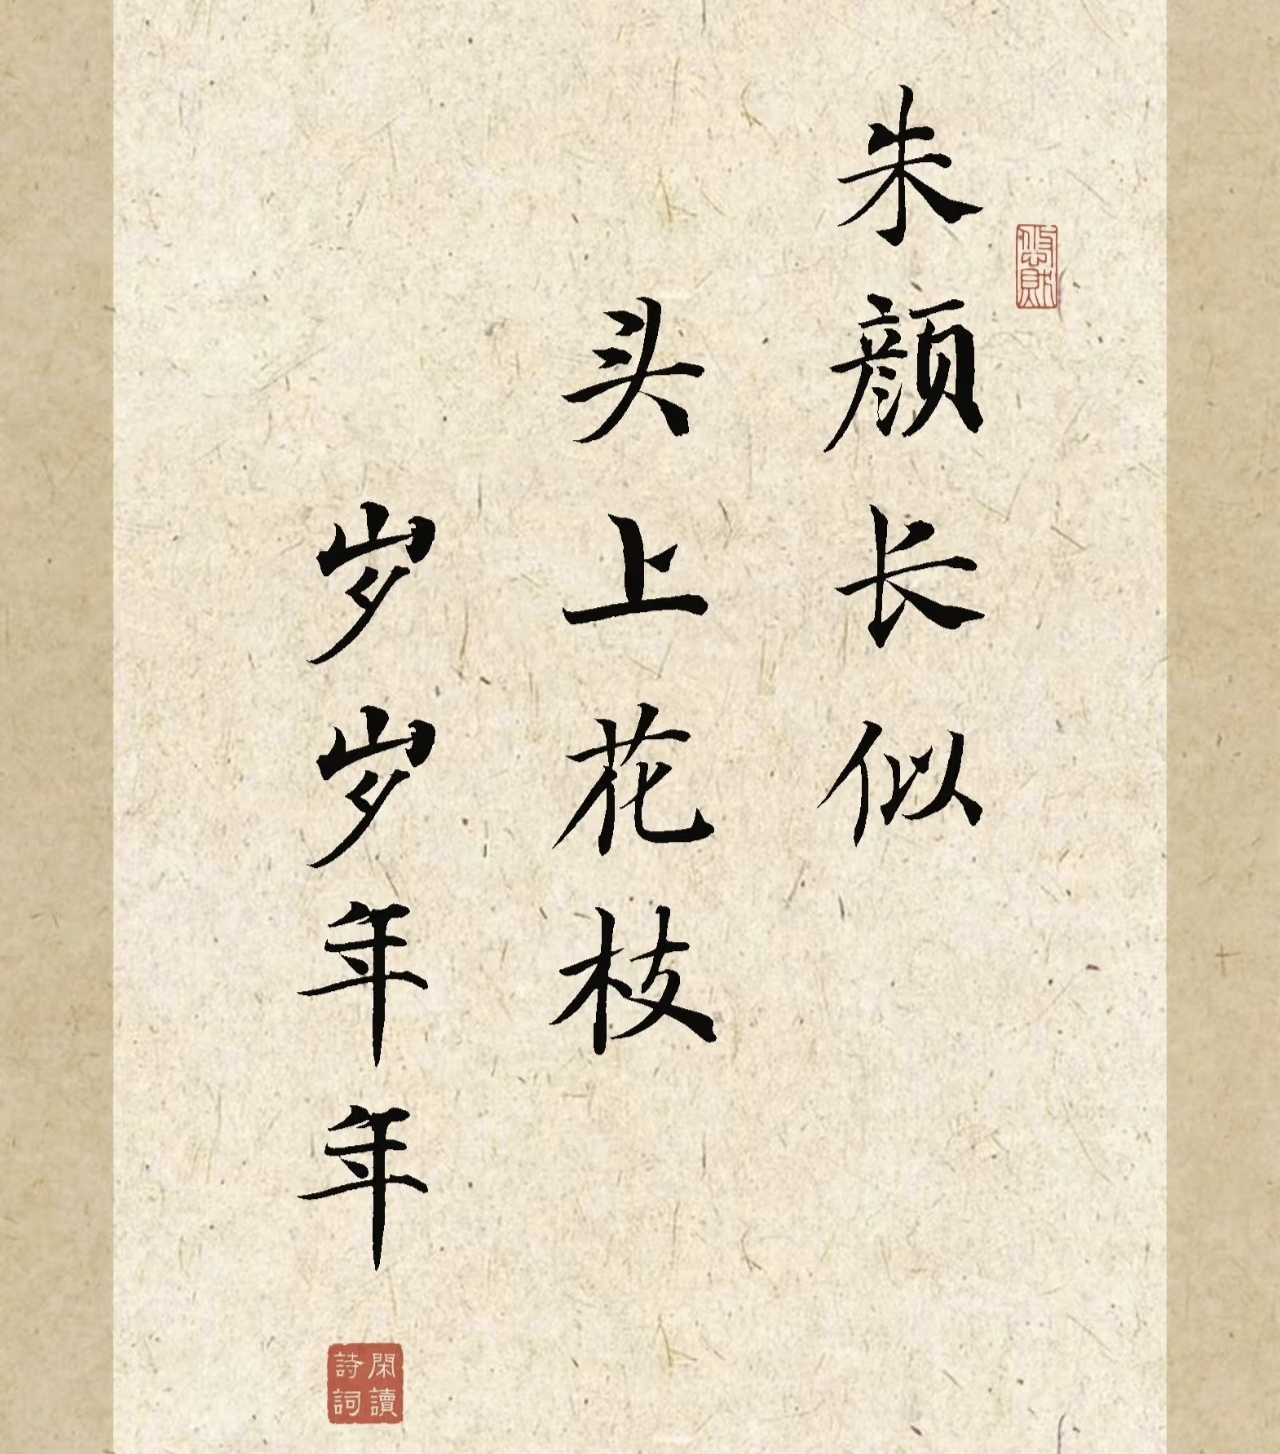 朱颜长似
头上花枝
岁岁年年
閑讀
詩詞